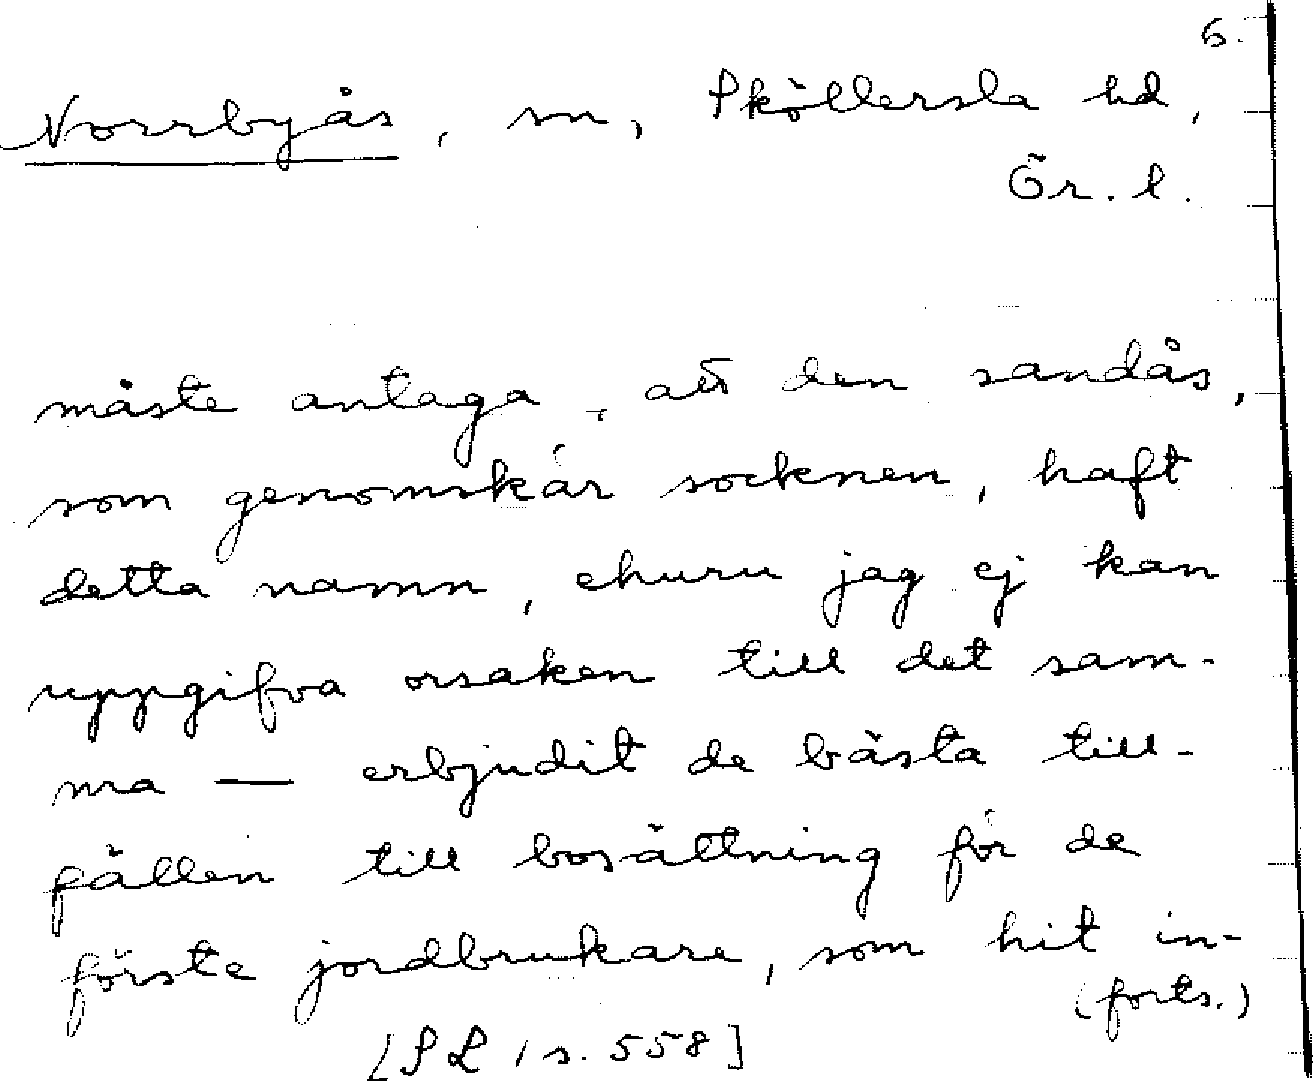 6.
Norrbyås, sn, Sköllersta hd,
Ör. l.
måste antaga, att den sandås,
som genomskär socknen, haft
detta namn, churu jag ej kan
uppgifva orsaken till det sam-
ma — erbjudit de bästa till-
fällen till bosättning för de
förste jordbrukare, som hit in-
(forts.)
[SL 1 s. 558]